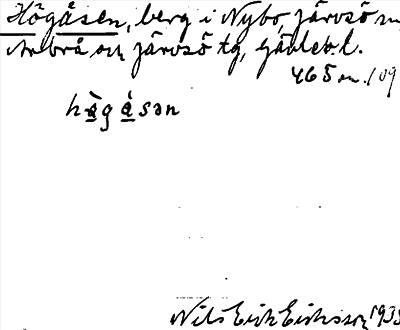 Högåsen, berg i Nybo, Järvsö sn,
Arbrå och Järvsö tg, Gävleb. l.
465 m. / 09
hàgásən
Nils Erik Eriksson 1935